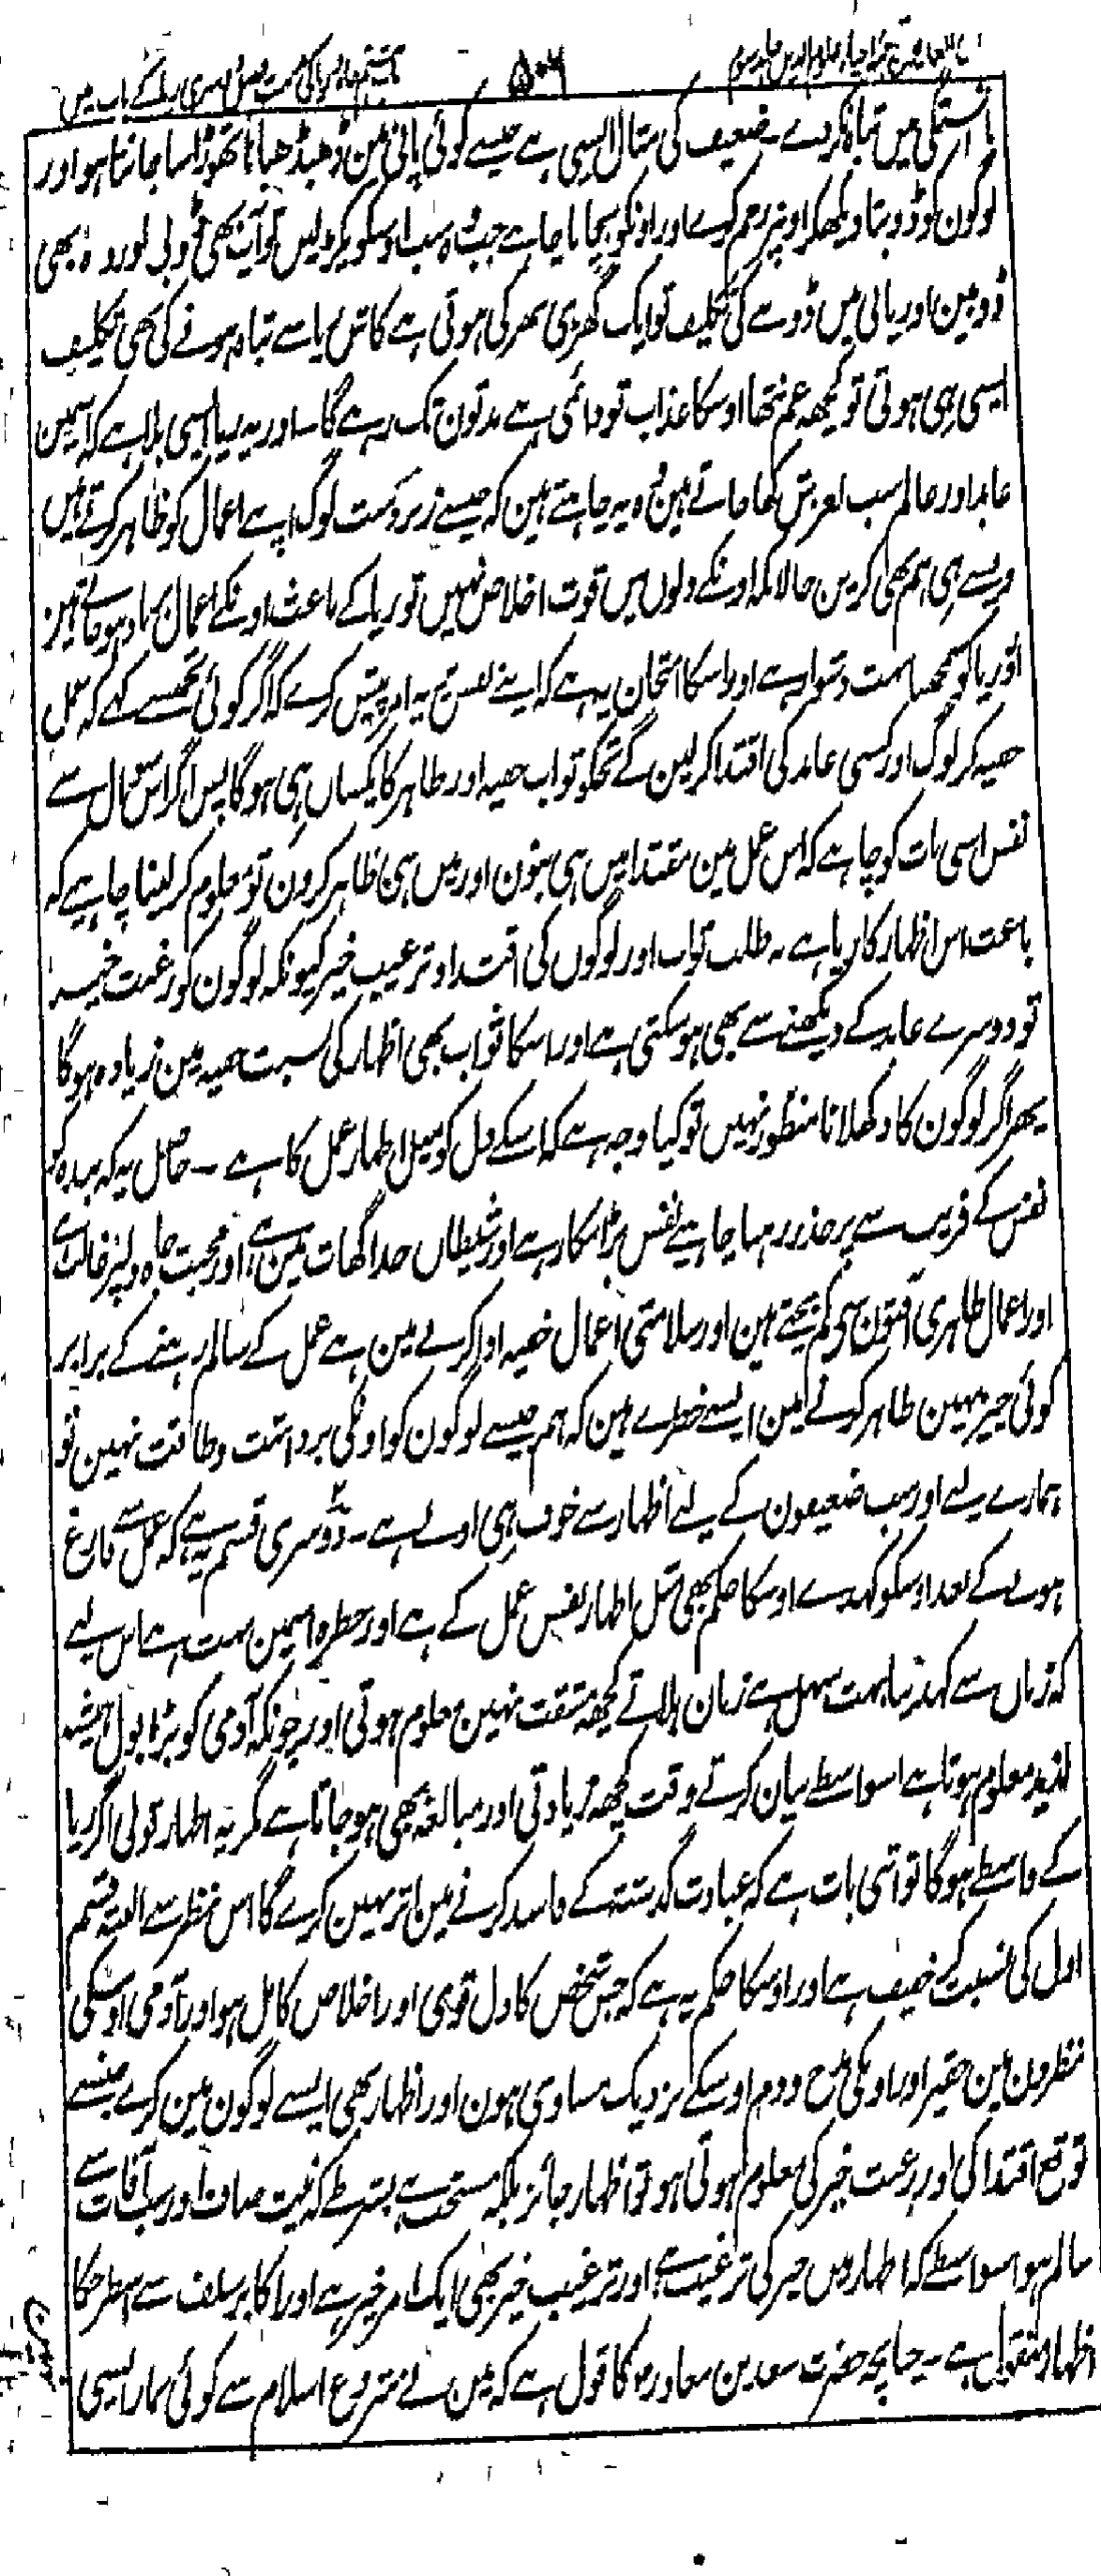 مذاق العارفین ترجمہ احیاء علوم الدین جلد سوم
۵۰۶
نادانستگی میں تباہ کر دے ۔ ضعیف کی مثال ایسی ہے جیسے کوئی پانی مین تھوڑا سا جانتا ہو اور
لوگون کو ڈوبتا دیکھکر اونپر رحم کرے اور اونکو بچانا چاہے جب وہ سب اوسکو پکڑ لیں تو آپ بھی ڈوبے اور وہ بھی
ڈوبین اور پانی میں ڈوبنے کی تکلیف تو ایک گھڑی بھر کی ہوتی ہے کاش ریا سے تباہ ہونے کی بھی تکلیف
ایسی ہی ہوتی تو کچھ غم نتھا اوسکا عذاب تو دائمی ہے مدتون تک رہے گا ۔ اور یہ ریا ایسی بلا ہے کہ اسمین
عابد اور عالم سب لغزش کھا جاتے ہین وہ یہ چاہتے ہین کہ جیسے زبردست لوگ اپنے اعمال کو ظاہر کرتے ہیں
ویسے ہی ہم بھی کرین حالانکہ اونکے دلوں میں قوت اخلاص نہیں تو ریا کے باعث اونکے اعمال برباد ہو جاتے ہین
اور ریا کو سمجھنا بہت دشوار ہے اور اسکا امتحان یہ ہے کہ اپنے نفس پر یہ امر پیش کرے کہ اگر کوئی تجھسے کہے کہ عمل
خفیہ کر لوگ اور کسی عابد کی اقتدا کر لین گے تجکو ثواب خفیہ اور ظاہر کا یکساں ہی ہوگا پس اگر اس حال سے
نفس اسی بات کو چاہے کہ اس عمل مین مقتدا میں ہی بنون اور میں ہی ظاہر کرون تو معلوم کر لینا چاہیے کہ
باعث اس اظہار کا ریا ہے نہ طلب ثواب اور لوگوں کی اقتدا و ترغیب خیر کیونکہ لوگون کو رغبت خیر
تو دوسرے عابد کے دیکھنے سے بھی ہو سکتی ہے اور اسکا ثواب بھی اظہار کی نسبت خفیہ مین زیادہ ہوگا
پھر اگر لوگون کا دکھلانا منظور نہیں تو کیا وجہ ہے کہ اسکے دل کو میل اظہار عمل کا ہے ۔ حاصل یہ کہ بندہ کو
نفس کے فریب سے پر حذر رہنا چاہیے نفس بڑا مکار ہے اور شیطان جدا گھات مین ہے اور محبت جاہ دلپر غالب ہے
اور اعمال ظاہری آفتون سے کم بچتے ہین اور سلامتی اعمال خفیہ ادا کرنے مین ہے عمل کے سالم رہنے کے برابر
کوئی چیز نہین ظاہر کرنے مین ایسے خطرے ہین کہ ہم جیسے لوگون کو اونکی برداشت و طاقت نہین تو
ہمارے لیے اور سب ضعیفون کے لیے اظہار سے خوف ہی اولے ہے ۔ دوسری قسم یہ ہے کہ عمل سے فارغ
ہونے کے بعد اوسکو کہدے اوسکا حکم بھی مثل اظہار نفس عمل کے ہے اور خطرہ اسمین بہت ہے اس لیے
کہ زبان سے کہدینا بہت سہل ہے زبان ہلاتے کچھ مشقت نہین معلوم ہوتی اور چونکہ آدمی کو بڑا بول ہمیشہ
لذیذ معلوم ہوتا ہے اسواسطے بیان کرتے وقت کچھ زیادتی اور مبالغہ بھی ہو جاتا ہے مگر یہ اظہار قولی اگر ریا
کے واسطے ہوگا تو اتنی بات ہے کہ عبادت گذشتہ کے فاسد کرنے مین اثر نہین کرے گا اس نظر سے البتہ قسم
اول کی نسبت کر خفیف ہے اور اوسکا حکم یہ ہے کہ جس شخص کا دل قوی اور اخلاص کامل ہو اور آدمی اوسکی
نظرون مین حقیر اور اونکی مدح و ذم اوسکے نزدیک مساوی ہون اور اظہار بھی ایسے لوگون مین کرے جنسے
توقع اقتدا کی اور رغبت خیر کی معلوم ہوتی ہو تو اظہار جائز بلکہ مستحب ہے بشرطیکہ نیت صاف اور سب آفات سے
سالم ہو اسواسطے کہ اظہار میں خیر کی ترغیب ہے اور ترغیب خیر بھی ایک امر خیر ہے اور اکابر سلف سے اسطرحکا
اظہار منقول ہے ۔ چنانچہ حضرت سعد بن معاذ رضہ کا قول ہے کہ مین نے شروع اسلام سے کوئی نماز ایسی